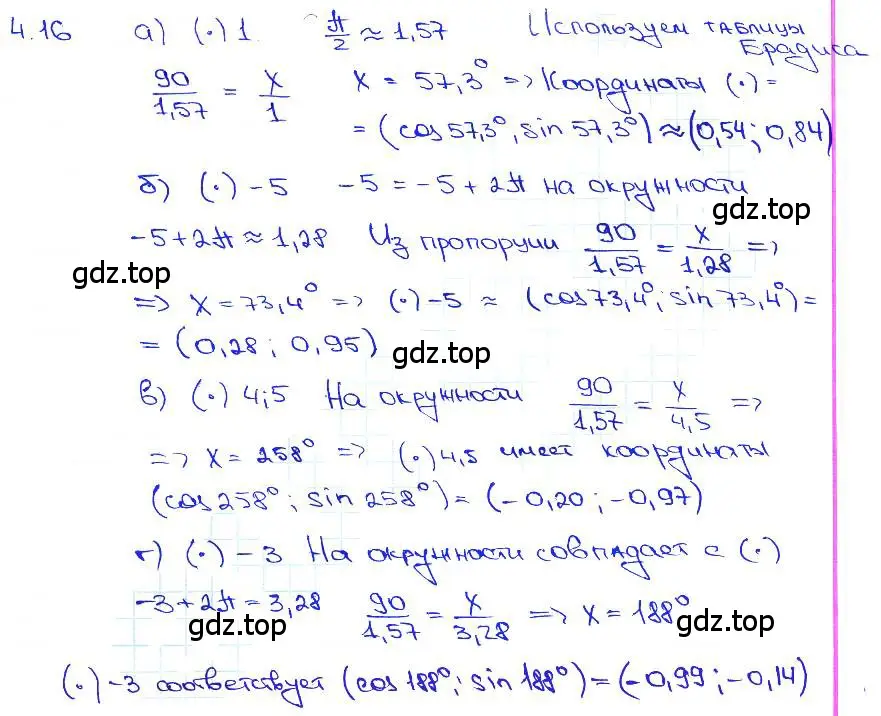 4.16 а) (·) 1 π/2 ≈ 1,57 Используем таблицы Брадиса
90/1,57 = x/1 x = 57,3° => Координаты (·) =
= (cos 57,3°, sin 57,3°) ≈ (0,54; 0,84)
б) (·) -5 -5 = -5 + 2π на окружности
gdz.top
-5 + 2π ≈ 1,28 Из пропорции 90/1,57 = x/1,28 =>
gdz.top
=> x = 73,4° => (·) -5 ≈ (cos 73,4°; sin 73,4°) =
= (0,28; 0,95)
gdz.top
в) (·) 4,5 На окружности 90/1,57 = x/4,5 =>
=> x = 258° => (·) 4,5 имеет координаты
(cos 258°; sin 258°) = (-0,20; -0,97)
г) (·) -3 На окружности совпадает с (·)
-3 + 2π = 3,28 90/1,57 = x/3,28 => x = 188°
gdz.top gdz.top
(·) -3 соответствует (cos 188°; sin 188°) = (-0,99; -0,14)